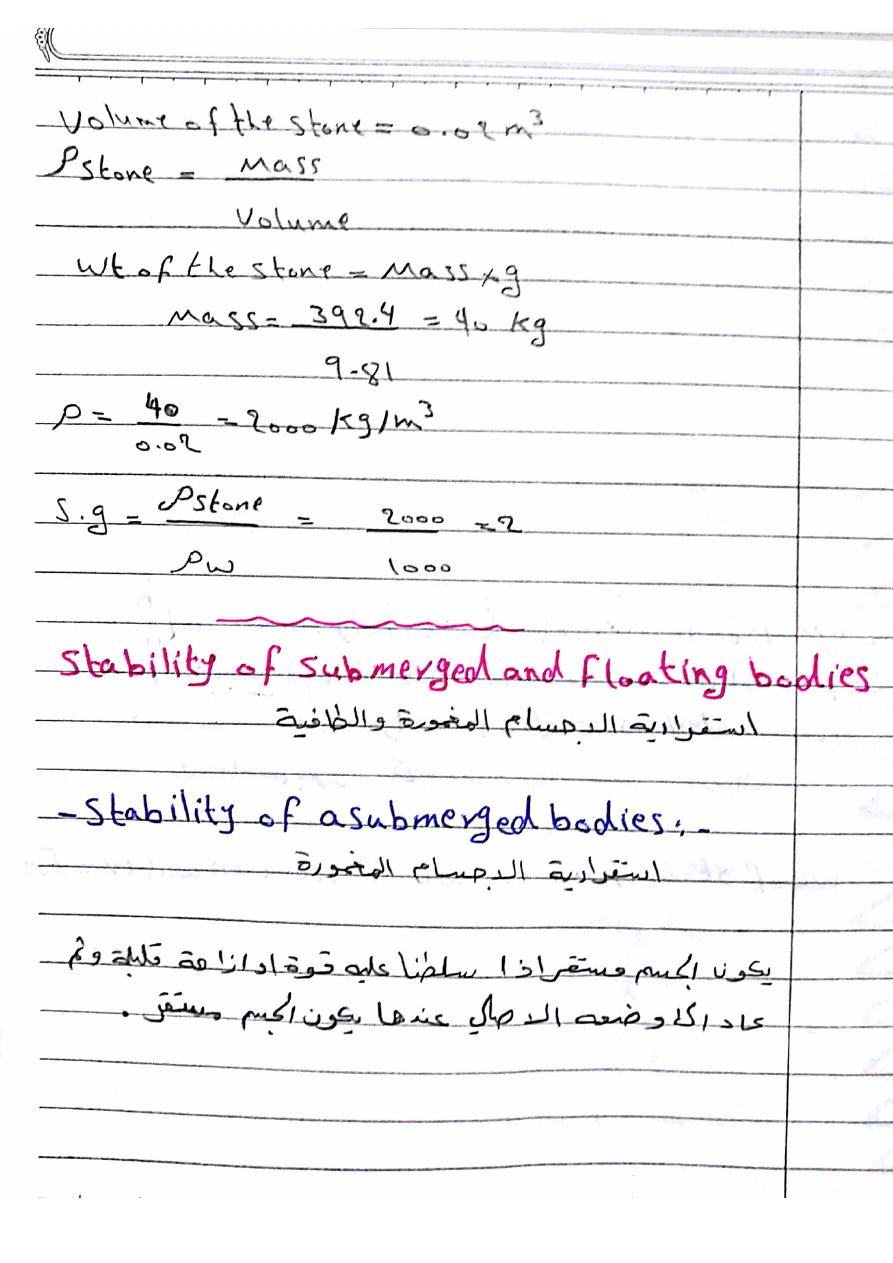 Volume of the stone = 0.02 m³
ρstone = Mass / Volume
Wt of the stone = Mass × g
Mass = 392.4 / 9.81 = 40 kg
ρ = 40 / 0.02 = 2000 kg/m³
S.g = ρstone / ρw = 2000 / 1000 = 2
Stability of submerged and floating bodies
استقرارية الاجسام المغمورة والطافية
- Stability of a submerged bodies :-
استقرارية الاجسام المغمورة
يكون الجسم مستقر اذا سلطنا عليه قوة او ازاحة قليلة وثم
عاد الى وضعه الاصلي عندها يكون الجسم مستقر .